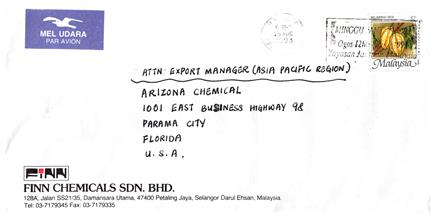 MEL UDARA
PAR AVION
MINGGU
Ogos
Malaysia
ATTN: EXPORT MANAGER (ASIA PACIFIC REGION)
ARIZONA CHEMICAL
1001 EAST BUSINESS HIGHWAY 98
PARAMA CITY
FLORIDA
U.S.A.
FINN
FINN CHEMICALS SDN. BHD.
128A, Jalan SS21/35, Damansara Utama, 47400 Petaling Jaya, Selangor Darul Ehsan, Malaysia.
Tel: 03-7179345 Fax: 03-7179335